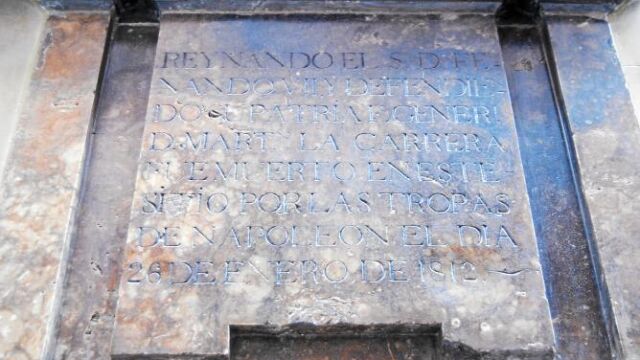 REYNANDO EL S. D. FE-
NANDO VII Y DEFENDIE-
DO SU PATRIA EL GENERL
D. MARTN LA CARRERA
FUE MUERTO EN ESTE
SITIO POR LAS TROPAS
DE NAPOLEON EL DIA
26 DE ENERO DE 1812